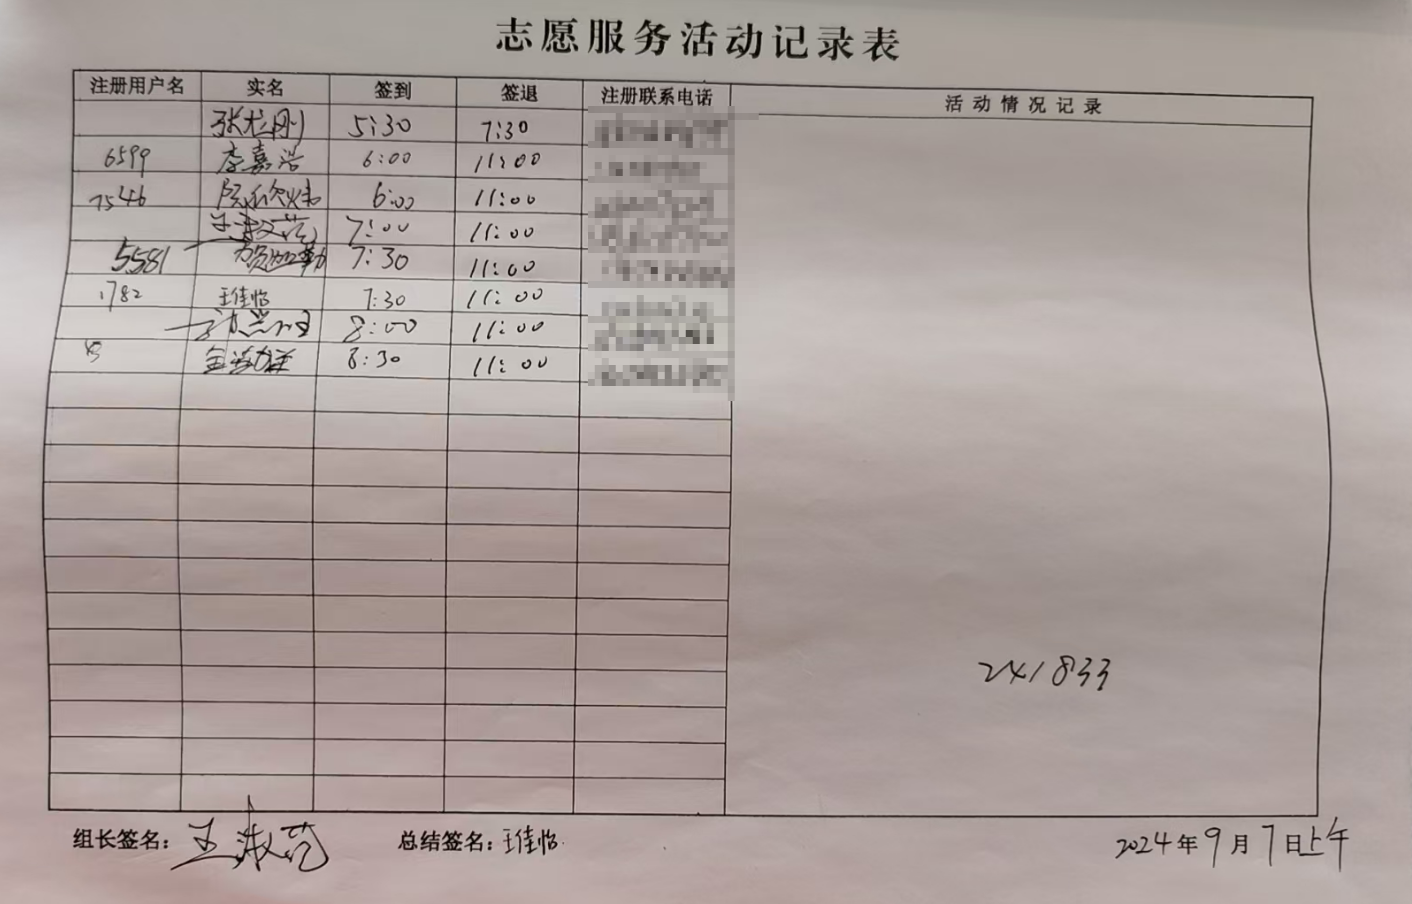 志愿服务活动记录表
注册用户名 实名 签到 签退 注册联系电话 活动情况记录
5:30 7:30
6599 李嘉浩 6:00 11:00
7546 6:00 11:00
王淑范 7:00 11:00
5581 贺迦勒 7:30 11:00
1782 王佳怡 7:30 11:00
8:00 11:00
8:30 11:00
241833
组长签名: 王淑范 总结签名: 王佳怡 2024年9月7日上午